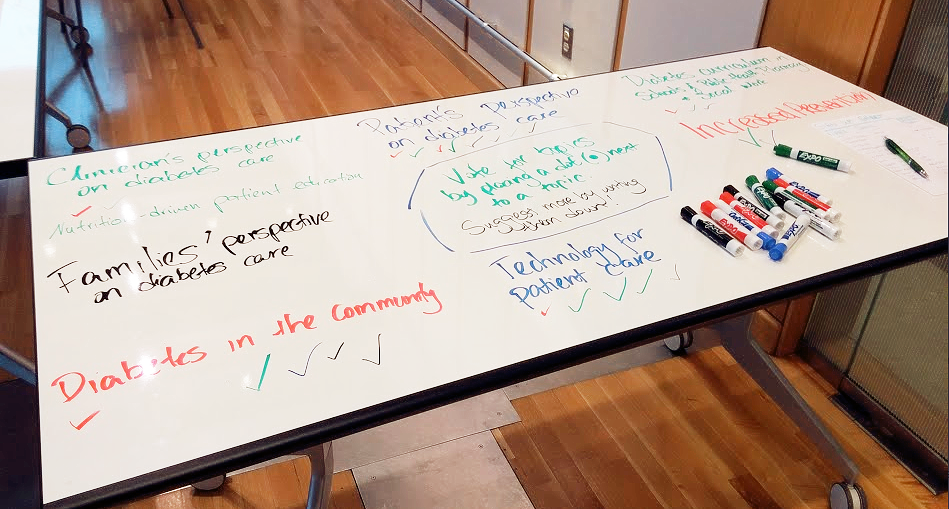 Clinician's perspective
on diabetes care
Nutrition-driven patient education
Families' perspective
on diabetes care
Diabetes in the community
Patient's perspective
on diabetes care
Vote for topics
by placing a dot (•) next
to a topic
Suggest more by writing
them down!
Technology for
patient care
Diabetes curriculum in
Schools of Public Health Pharmacy
+ Social Work
Increased Prevention
EXPO
EXPO
EXPO